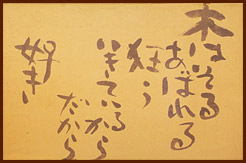 木はいる
あばれる
狂う
いきているから
だから
好き